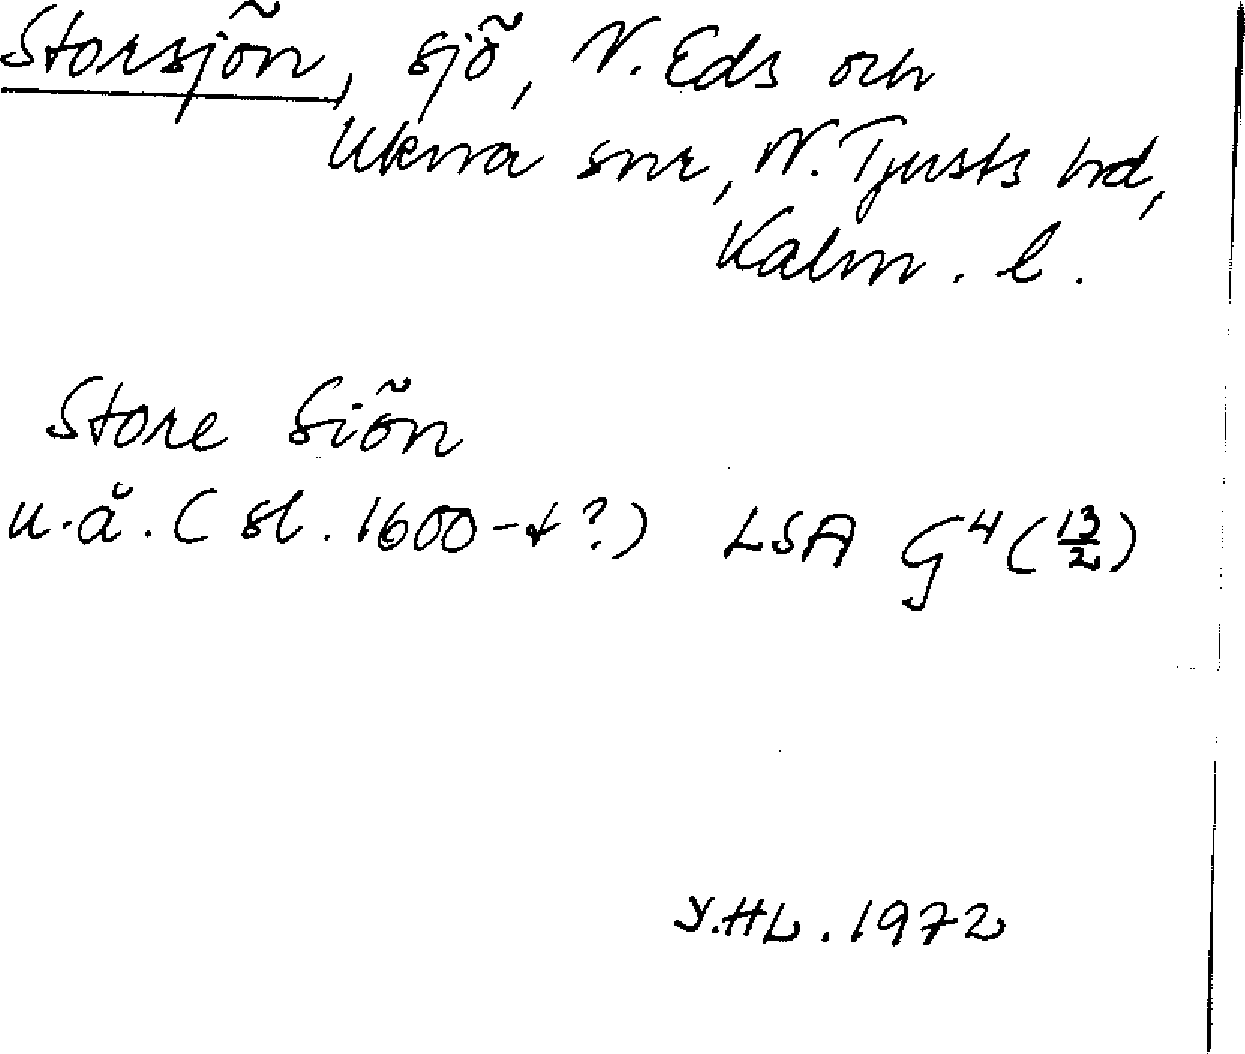 Storsjön, sjö, N. Eds och
Ukna snr, N. Tjusts hd,
Kalm. l.
Store Siön
u.å. (sl. 1600-t?) LSA G4 (13/2)
Y.HL. 1972